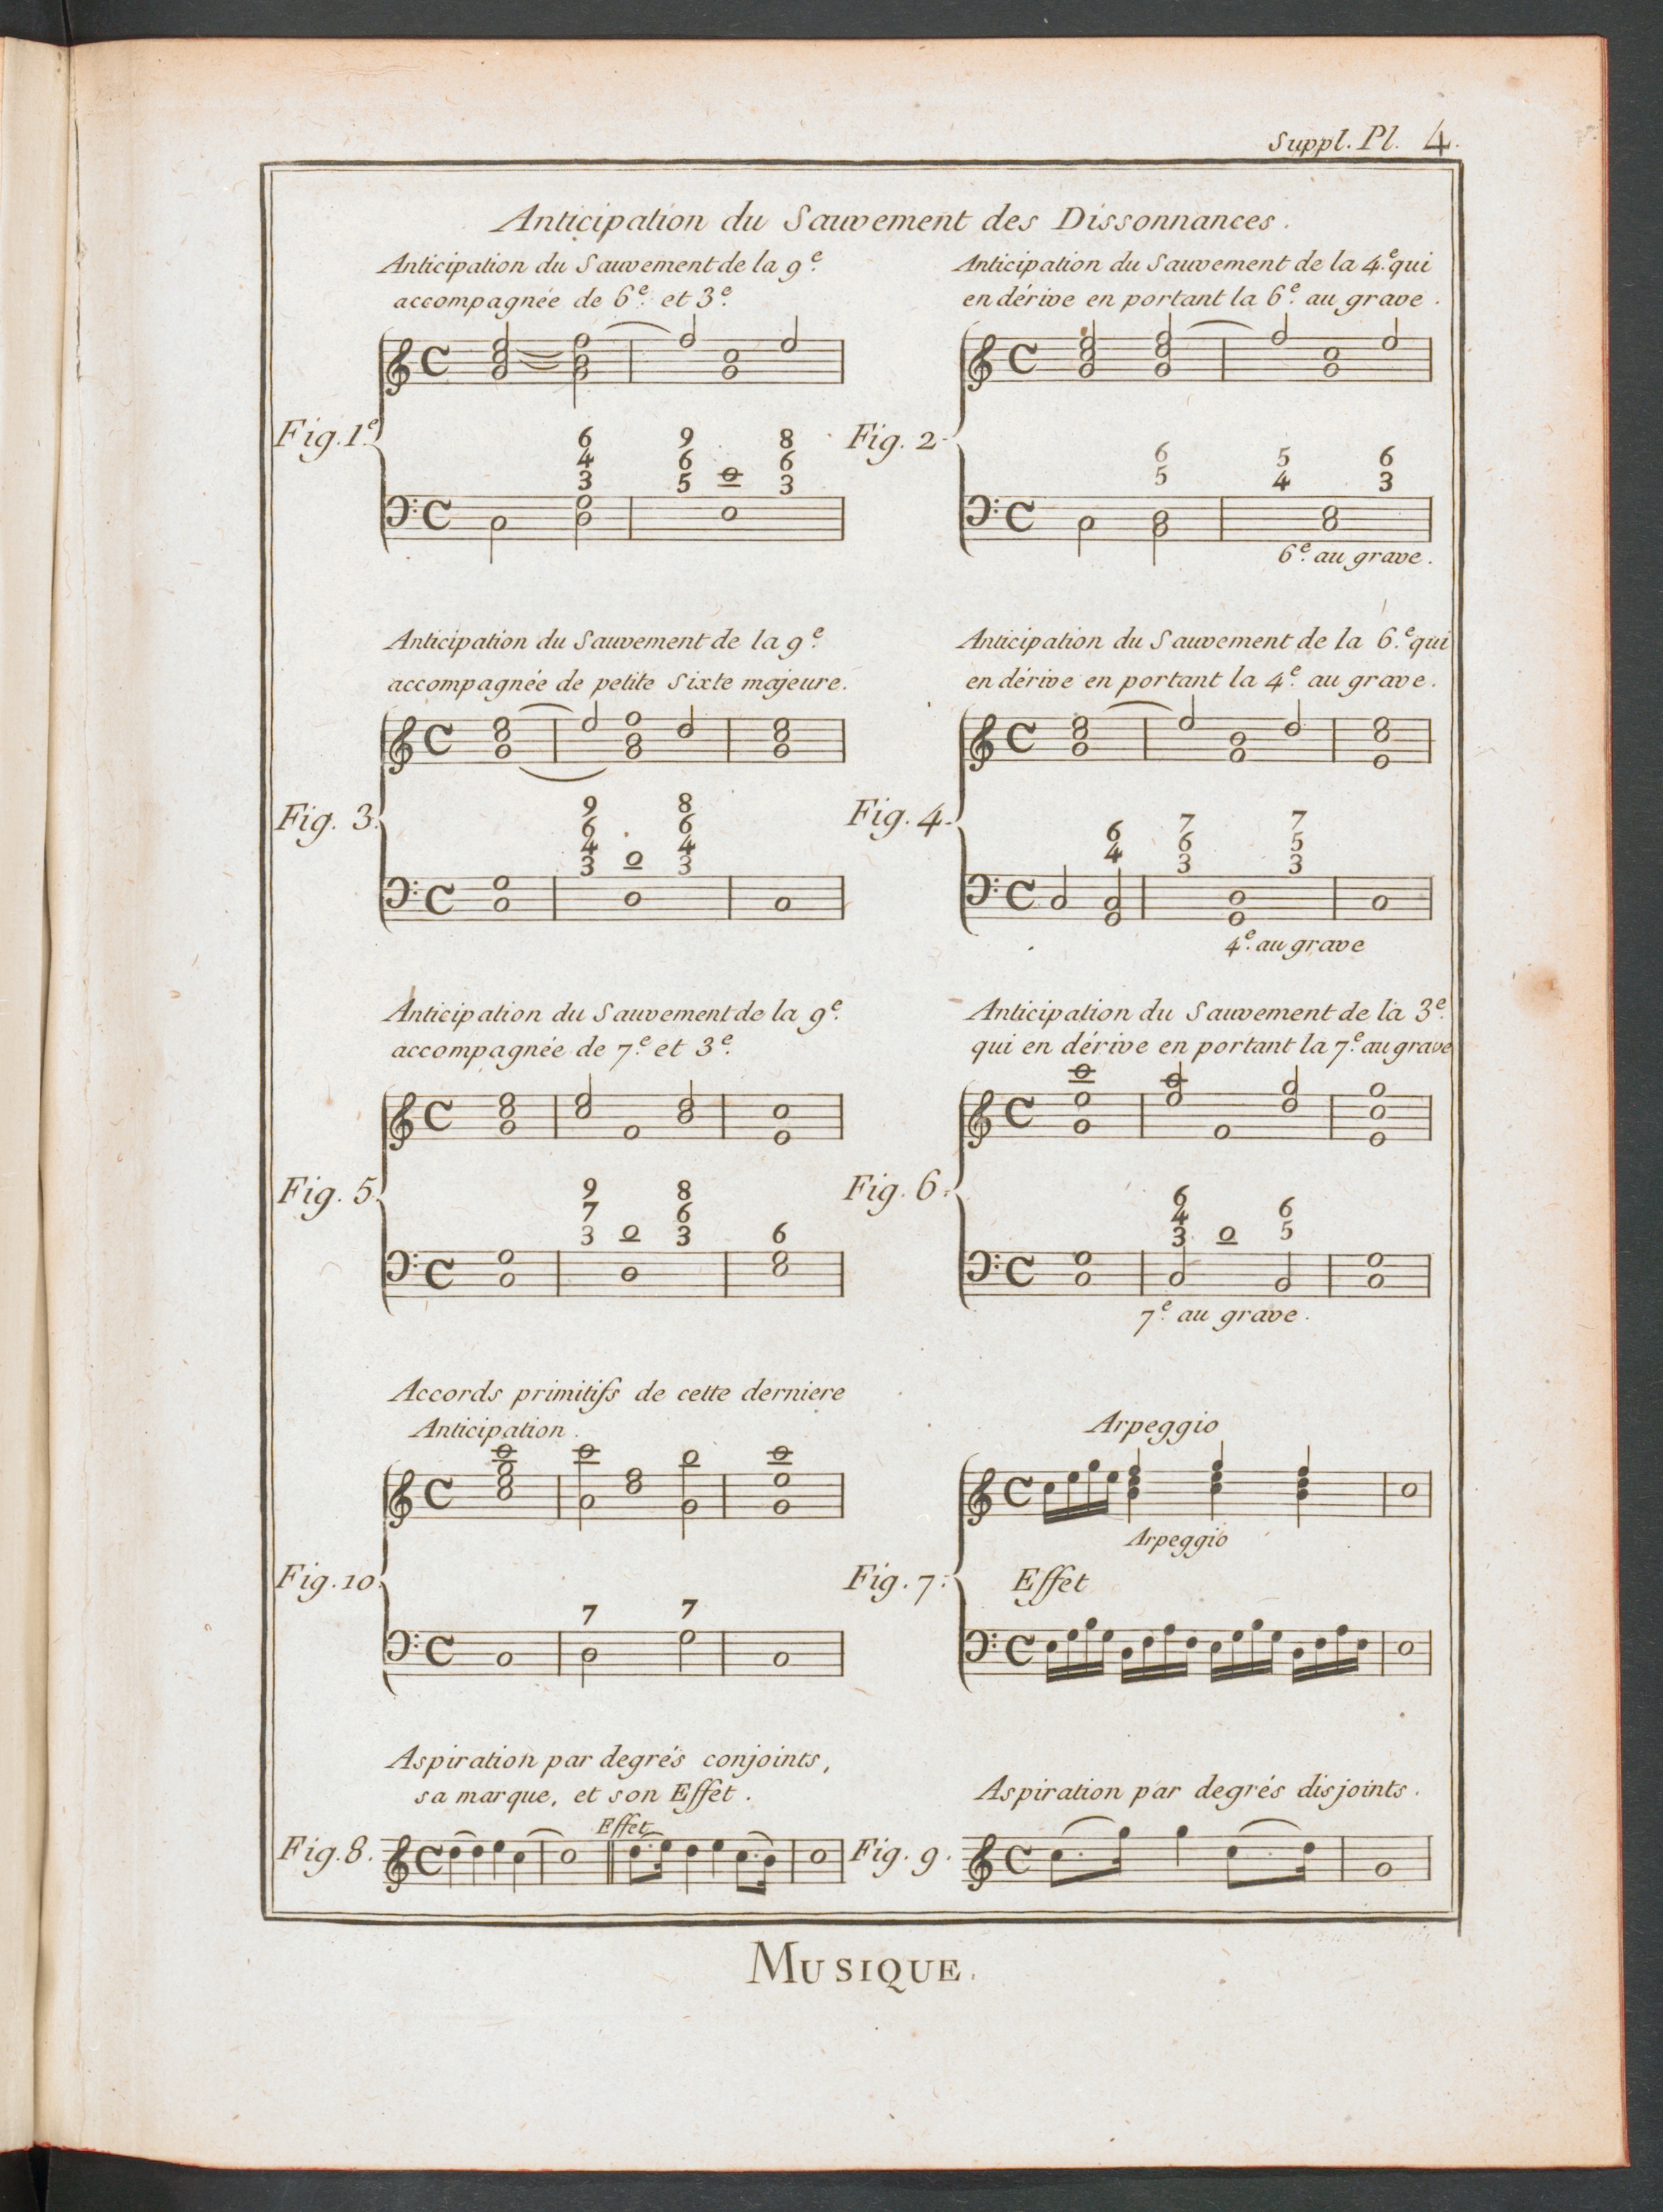 Suppl. Pl. 4.
Anticipation du Sauvement des Dissonnances.
Anticipation du Sauvement de la 9e.
accompagnée de 6e. et 3e.
Fig. 1e.
6 9 8
4 6 6
3 5 3
Anticipation du Sauvement de la 4.e qui
en dérive en portant la 6e. au grave.
Fig. 2.
6 5 6
5 4 3
6e. au grave.
Anticipation du Sauvement de la 9e.
accompagnée de petite Sixte majeure.
Fig. 3.
9 8
6 6
4 4
3 3
Anticipation du Sauvement de la 6.e qui
en dérive en portant la 4e. au grave.
Fig. 4.
7 7
6 6 5
4 3 3
4e. au grave
Anticipation du Sauvement de la 9e.
accompagnée de 7.e et 3e.
Fig. 5.
9 8
7 6
3 3 6
Anticipation du Sauvement de la 3e.
qui en dérive en portant la 7.e au grave
Fig. 6.
6
4 6
3 5
7e. au grave.
Accords primitifs de cette derniere
Anticipation.
Fig. 10.
7 7
Arpeggio
Arpeggio
Fig. 7.
Effet
Aspiration par degrés conjoints,
sa marque, et son Effet.
Effet
Fig. 8.
Aspiration par degrés disjoints.
Fig. 9.
MUSIQUE.